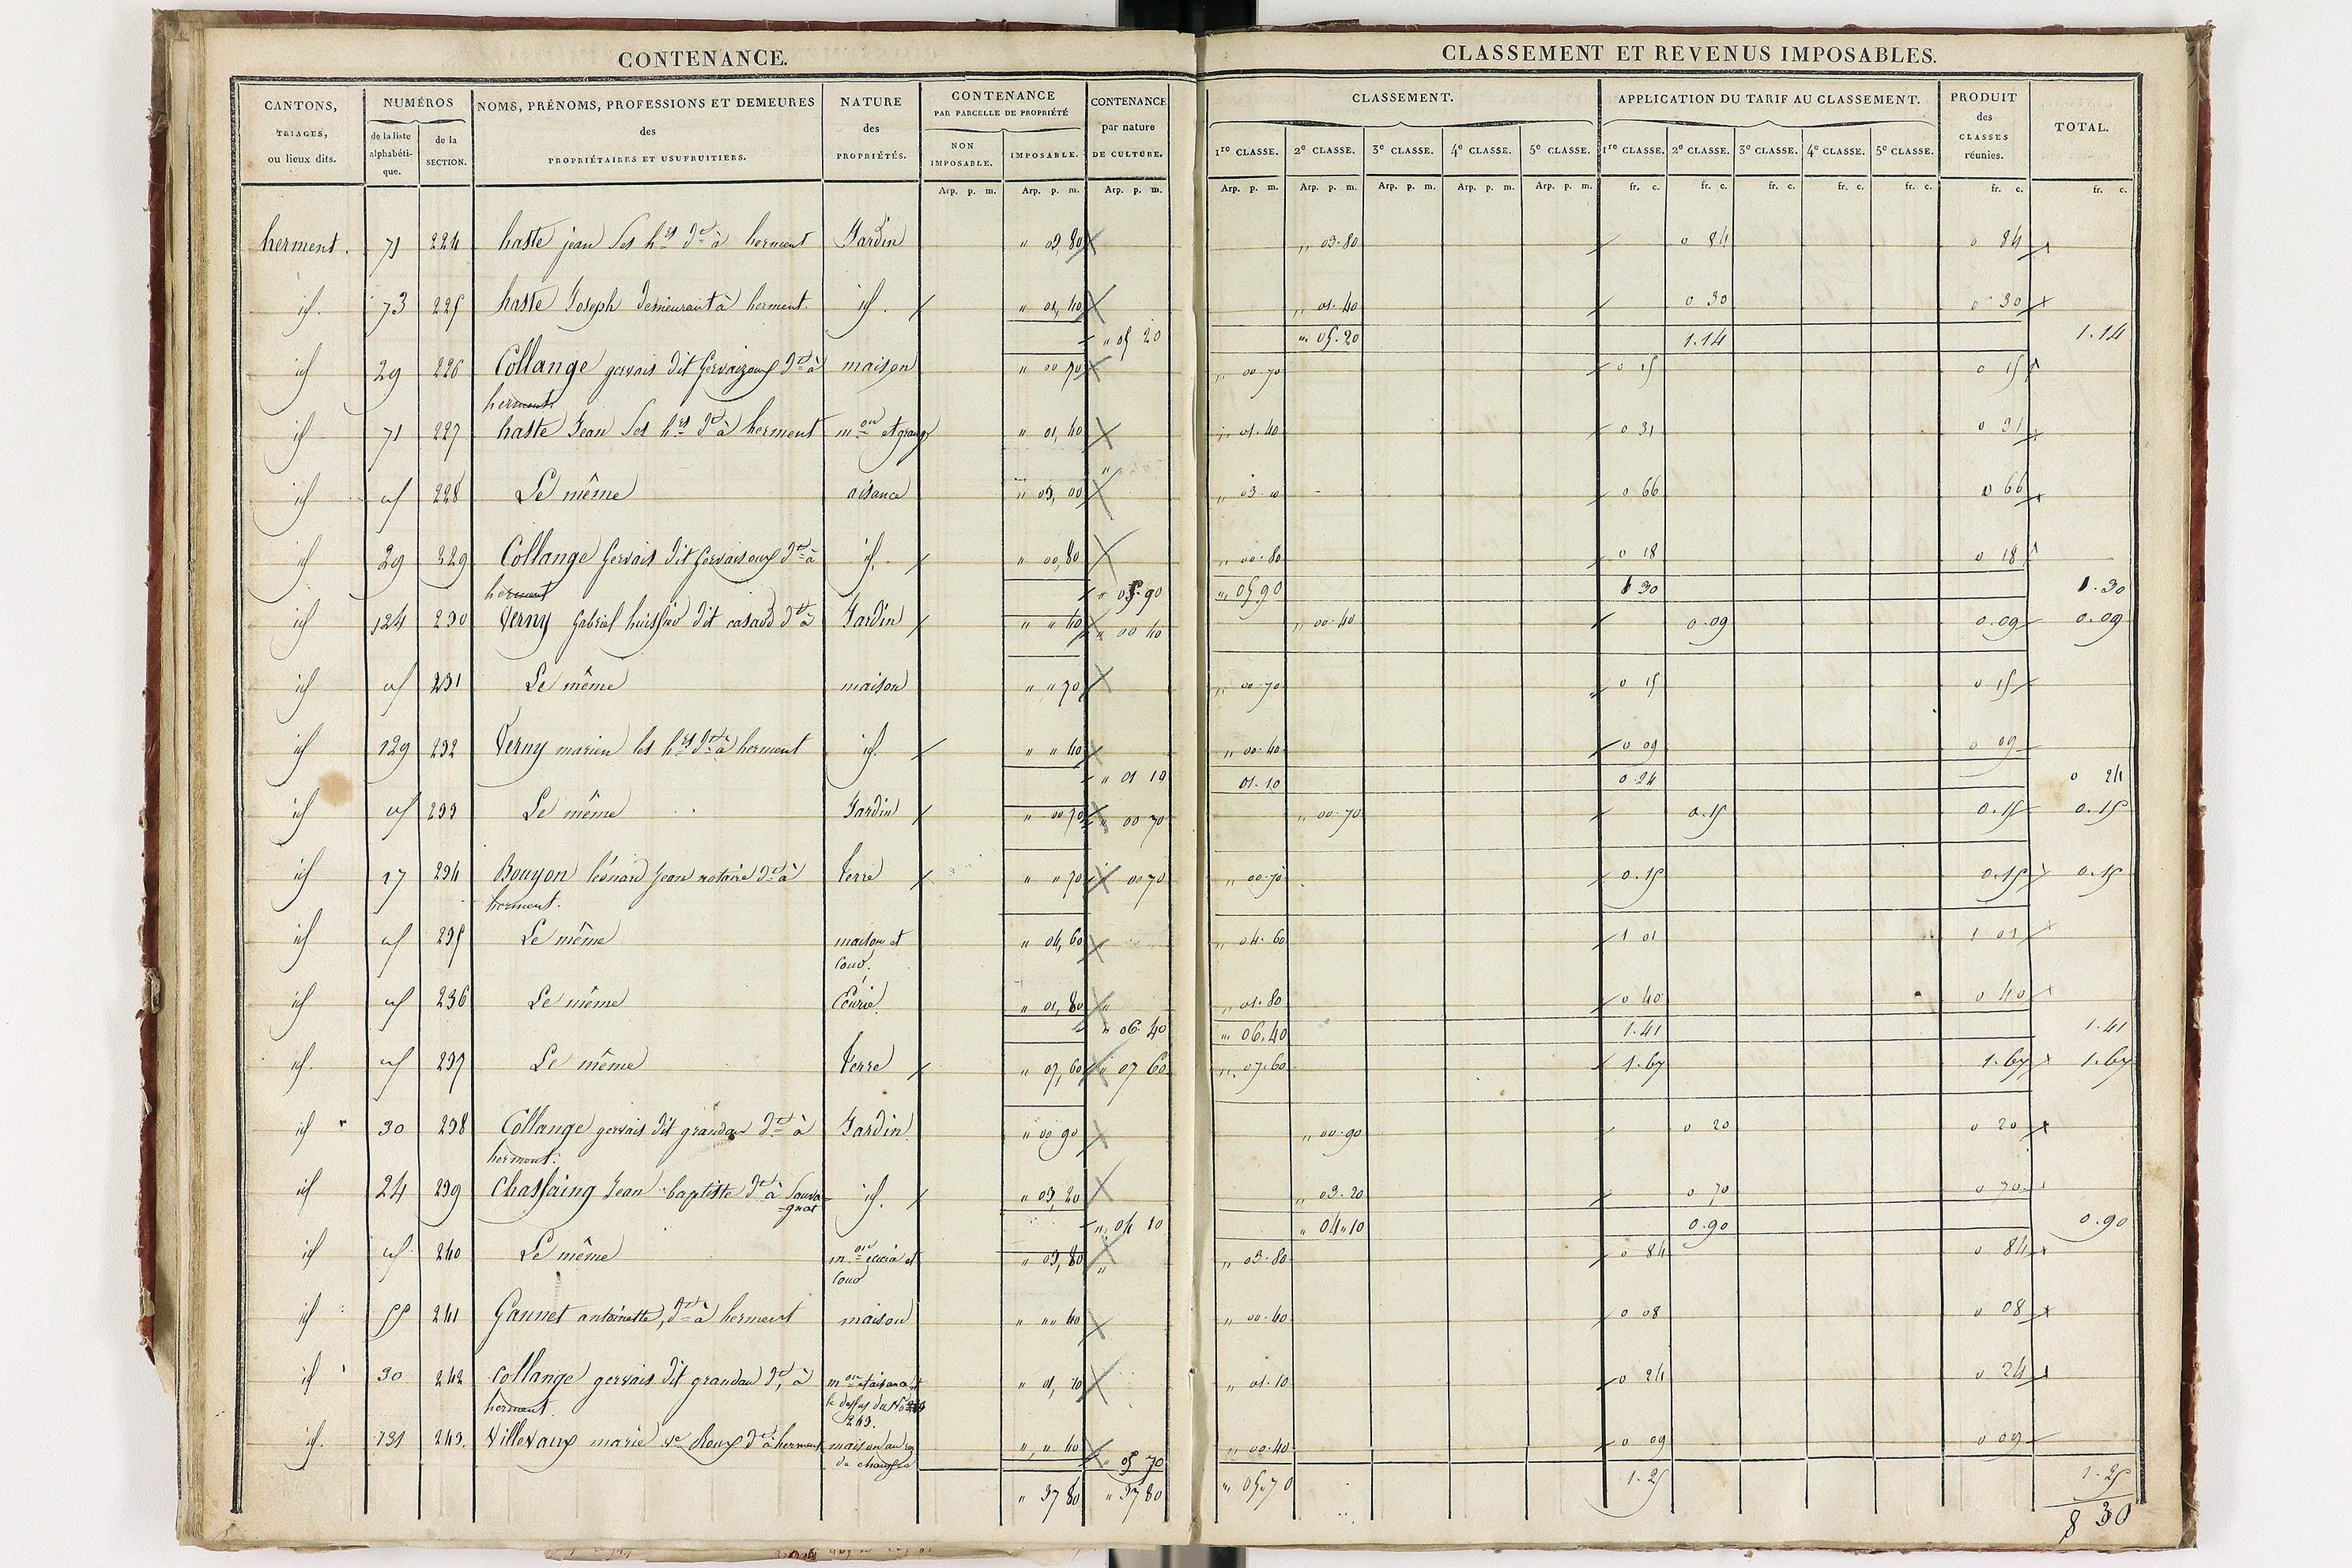 CONTENANCE.
CLASSEMENT ET REVENUS IMPOSABLES.
CANTONS, TRIAGES, ou lieux dits.
NUMÉROS
de la liste alphabétique.
de la SECTION.
NOMS, PRÉNOMS, PROFESSIONS ET DEMEURES des PROPRIÉTAIRES ET USUFRUITIERS.
NATURE des PROPRIÉTÉS.
CONTENANCE PAR PARCELLE DE PROPRIÉTÉ
NON IMPOSABLE.
IMPOSABLE.
CONTENANCE par nature DE CULTURE.
CLASSEMENT.
1re CLASSE. 2e CLASSE. 3e CLASSE. 4e CLASSE. 5e CLASSE.
APPLICATION DU TARIF AU CLASSEMENT.
1re CLASSE. 2e CLASSE. 3e CLASSE. 4e CLASSE. 5e CLASSE.
PRODUIT des CLASSES réunies.
TOTAL.
Arp. p. m. Arp. p. m. Arp. p. m. Arp. p. m. Arp. p. m. Arp. p. m. Arp. p. m. Arp. p. m. fr. c. fr. c. fr. c. fr. c. fr. c. fr. c. fr. c.
herment. 71 224 haste jean ses hrs dt à herment Jardin " 03,80 " 03.80 0 84 0 84
id. 73 225 haste Joseph demeurant à herment. id. " 01,40 " 01.40 0 30 0 30
" 05 20 " 05.20 1.14 1.14
id 29 226 Collange gervais dit Gervaizoux dt à maison " 00 70 " 00 70 0 15 0 15
herment.
id 71 227 haste Jean ses hrs dt à herment mon et grange " 01,40 " 01.40 0 31 0 31
id id 228 Le même aisance " 03,00 " 03.00 0 66 0 66
id 29 229 Collange Gervais dit Gervaisoux dt à id. " 00,80 " 00.80 0 18 0 18
herment
" 05.90 " 05 90 1 30 1.30
id 124 230 Verny Gabriel huissier dit casaud dt à Jardin " " 40 " 00 40 " 00.40 0.09 0.09 0.09
id id 231 Le même maison " " 70 " 00.70 0 15 0 15
id 129 232 Verny marien les hrs dt à herment id. " " 40 " 00.40 0 09 0 09
" 01 10 01.10 0.24 0 24
id id 233 Le même Jardin " 00 70 " 00 70 " 00.70 0.15 0.15 0.15
id 17 234 Bouyon léonard Jean notaire dt à terre " " 70 " 00 70 " 00.70 0.15 0.15 0.15
herment.
id id 235 Le même maison et " 04,60 " 04.60 1 01 1 01
cour.
id id 236 Le même Écurie. " 01,80 " 01.80 0 40 0 40
" 06.40 " 06.40 1.41 1.41
id. id 237 Le même terre " 07,60 " 07 60 " 07.60 1.67 1.67 1.67
id 30 238 Collange gervais dit grandou dt à Jardin " 00 90 " 00.90 0 20 0 20
herment.
id 24 239 Chassaing Jean baptiste dt à Sauva- id. " 03,20 " 03.20 0 70 0 70
-gnat
" 04 10 " 04.10 0.90 0.90
id id 240 Le même mon écurie et " 03,80 " 03.80 0 84 0 84
cour
id 55 241 Gannet antoinette, dt à herment maison " " 40 " 00.40 0 08 0 08
id 30 242 Collange gervais dit grandou dt à mon et aisance " 01,10 " 01.10 0 24 0 24
herment le dessus du No
243.
id. 131 243. Villevaux marie ve Roux dt à herment maison au rez " " 40 " 00.40 0 09 0 09
de chaussée
" 05 70 " 05.70 1.25 1.25
" 37 80 " 37 80 8 30